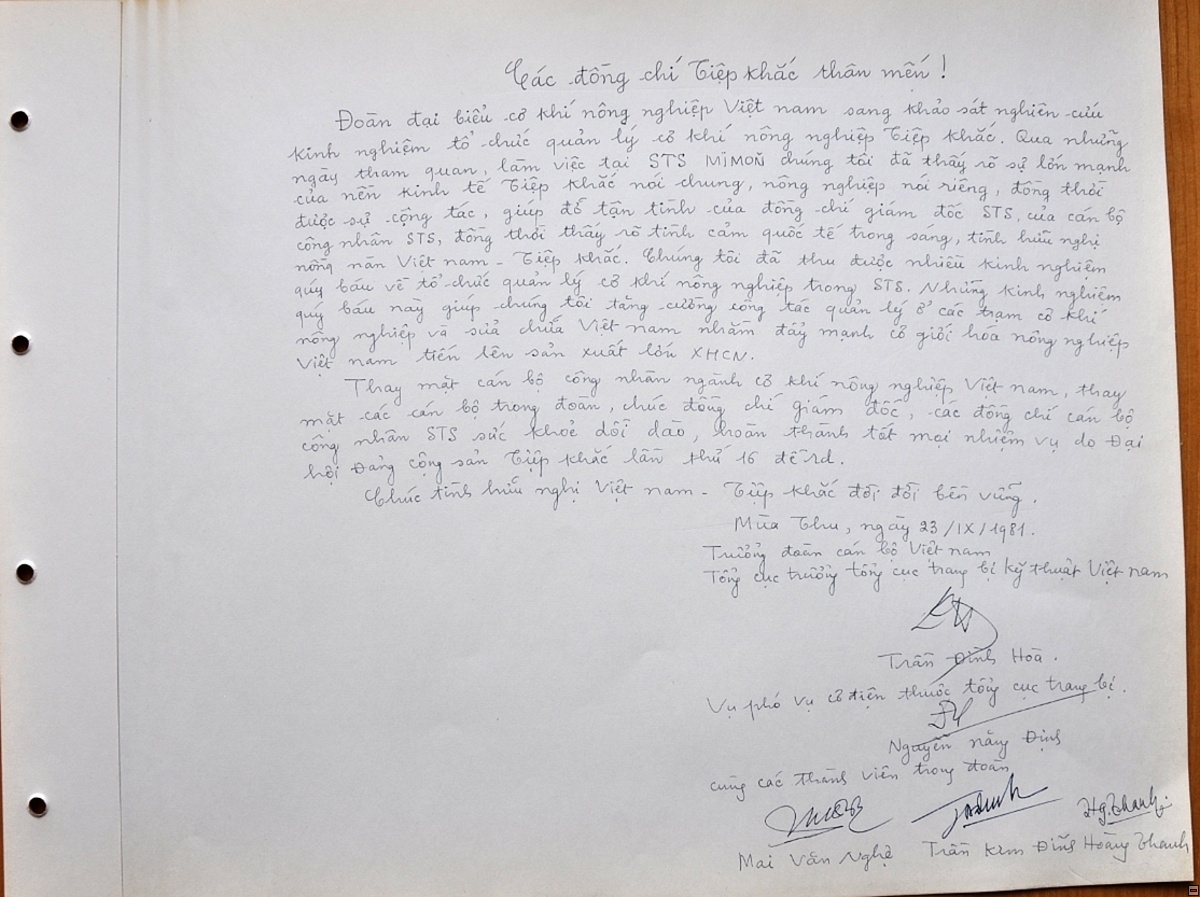 Các đồng chí Tiệp khắc thân mến !
Đoàn đại biểu cơ khí nông nghiệp Việt nam sang khảo sát nghiên cứu
kinh nghiệm tổ chức quản lý cơ khí nông nghiệp Tiệp khắc. Qua những
ngày tham quan, làm việc tại STS MIMOŇ chúng tôi đã thấy rõ sự lớn mạnh
của nền kinh tế Tiệp khắc nói chung, nông nghiệp nói riêng, đồng thời
được sự cộng tác, giúp đỡ tận tình của đồng chí giám đốc STS, của cán bộ
công nhân STS, đồng thời thấy rõ tình cảm quốc tế trong sáng, tình hữu nghị
nồng nàn Việt nam - Tiệp khắc. Chúng tôi đã thu được nhiều kinh nghiệm
quý báu về tổ chức quản lý cơ khí nông nghiệp trong STS. Những kinh nghiệm
quý báu này giúp chúng tôi tăng cường công tác quản lý ở các trạm cơ khí
nông nghiệp và sửa chữa Việt nam nhằm đẩy mạnh cơ giới hóa nông nghiệp
Việt nam tiến lên sản xuất lớn XHCN.
Thay mặt cán bộ công nhân ngành cơ khí nông nghiệp Việt nam, thay
mặt các cán bộ trong đoàn, chúc đồng chí giám đốc, các đồng chí cán bộ
công nhân STS sức khoẻ dồi dào, hoàn thành tốt mọi nhiệm vụ do Đại
hội Đảng cộng sản Tiệp khắc lần thứ 16 đề ra.
Chúc tình hữu nghị Việt nam - Tiệp khắc đời đời bền vững.
Mùa Thu, ngày 23/IX/1981.
Trưởng đoàn cán bộ Việt nam
Tổng cục trưởng tổng cục trang bị kỹ thuật Việt nam
Trần Đình Hoà.
Vụ phó vụ cơ điện thuộc tổng cục trang bị.
Nguyễn năng Định
cùng các thành viên trong đoàn
Hg.Thanh
Mai Văn Nghệ Trần Kim Đĩnh Hoàng Thanh